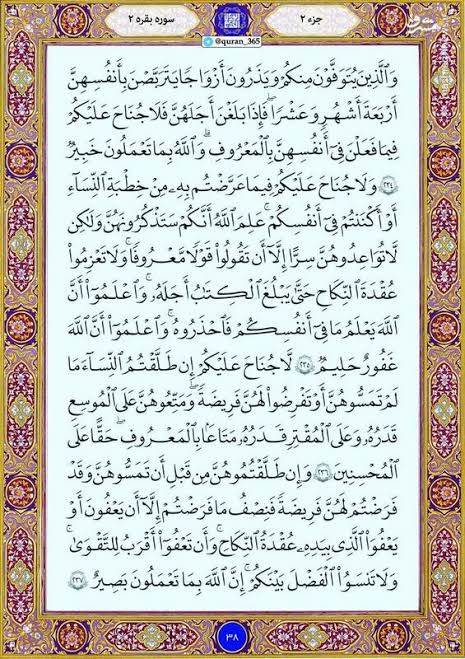 جزء ۲
@quran_365
سوره بقره ۲
وَٱلَّذِينَ يُتَوَفَّوۡنَ مِنكُمۡ وَيَذَرُونَ أَزۡوَٰجٗا يَتَرَبَّصۡنَ بِأَنفُسِهِنَّ
أَرۡبَعَةَ أَشۡهُرٖ وَعَشۡرٗاۖ فَإِذَا بَلَغۡنَ أَجَلَهُنَّ فَلَا جُنَاحَ عَلَيۡكُمۡ
فِيمَا فَعَلۡنَ فِيٓ أَنفُسِهِنَّ بِٱلۡمَعۡرُوفِۗ وَٱللَّهُ بِمَا تَعۡمَلُونَ خَبِيرٞ
٢٣٤ وَلَا جُنَاحَ عَلَيۡكُمۡ فِيمَا عَرَّضۡتُم بِهِۦ مِنۡ خِطۡبَةِ ٱلنِّسَآءِ
أَوۡ أَكۡنَنتُمۡ فِيٓ أَنفُسِكُمۡۚ عَلِمَ ٱللَّهُ أَنَّكُمۡ سَتَذۡكُرُونَهُنَّ وَلَٰكِن
لَّا تُوَاعِدُوهُنَّ سِرًّا إِلَّآ أَن تَقُولُواْ قَوۡلٗا مَّعۡرُوفٗاۚ وَلَا تَعۡزِمُواْ
عُقۡدَةَ ٱلنِّكَاحِ حَتَّىٰ يَبۡلُغَ ٱلۡكِتَٰبُ أَجَلَهُۥۚ وَٱعۡلَمُوٓاْ أَنَّ
ٱللَّهَ يَعۡلَمُ مَا فِيٓ أَنفُسِكُمۡ فَٱحۡذَرُوهُۚ وَٱعۡلَمُوٓاْ أَنَّ ٱللَّهَ
غَفُورٌ حَلِيمٞ ٢٣٥ لَّا جُنَاحَ عَلَيۡكُمۡ إِن طَلَّقۡتُمُ ٱلنِّسَآءَ مَا
لَمۡ تَمَسُّوهُنَّ أَوۡ تَفۡرِضُواْ لَهُنَّ فَرِيضَةٗۚ وَمَتِّعُوهُنَّ عَلَى ٱلۡمُوسِعِ
قَدَرُهُۥ وَعَلَى ٱلۡمُقۡتِرِ قَدَرُهُۥ مَتَٰعَۢا بِٱلۡمَعۡرُوفِۖ حَقًّا عَلَى
ٱلۡمُحۡسِنِينَ ٢٣٦ وَإِن طَلَّقۡتُمُوهُنَّ مِن قَبۡلِ أَن تَمَسُّوهُنَّ وَقَدۡ
فَرَضۡتُمۡ لَهُنَّ فَرِيضَةٗ فَنِصۡفُ مَا فَرَضۡتُمۡ إِلَّآ أَن يَعۡفُونَ أَوۡ
يَعۡفُوَاْ ٱلَّذِي بِيَدِهِۦ عُقۡدَةُ ٱلنِّكَاحِۚ وَأَن تَعۡفُوٓاْ أَقۡرَبُ لِلتَّقۡوَىٰۚ
وَلَا تَنسَوُاْ ٱلۡفَضۡلَ بَيۡنَكُمۡۚ إِنَّ ٱللَّهَ بِمَا تَعۡمَلُونَ بَصِيرٌ ٢٣٧
۳۸